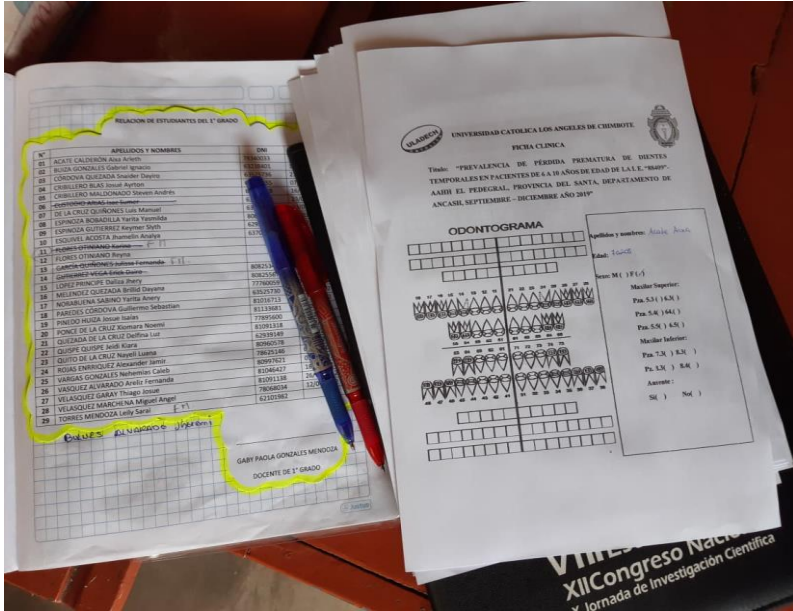 RELACION DE ESTUDIANTES DEL 1° GRADO
N° APELLIDOS Y NOMBRES DNI
01 ACATE CALDERÓN Aixa Arleth
02 BUIZA GONZALES Gabriel Ignacio
03 CÓRDOVA QUEZADA Snaider Dayiro
04 CRIBILLERO BLAS Josué Ayrton
05 CRIBILLERO MALDONADO Steven Andrés
06 CUSTODIO ARIAS Isac Sumer
07 DE LA CRUZ QUIÑONES Luis Manuel
08 ESPINOZA BOBADILLA Yarita Yesmilda
09 ESPINOZA GUTIERREZ Keymer Slyth
10 ESQUIVEL ACOSTA Jhamelin Analya
11 FLORES OTINIANO Karina
12 FLORES OTINIANO Reyna
13 GARCÍA QUIÑONES Julissa Fernanda
14 GUTIERREZ VEGA Erick Dairo
15 LOPEZ PRINCIPE Daliza Jhery
16 MELÉNDEZ QUEZADA Brillid Dayana
17 NORABUENA SABINO Yarita Anery 77760059
18 PAREDES CÓRDOVA Guillermo Sebastian 63525730
19 PINEDO HUIZA Josue Isaias 81016713
20 PONCE DE LA CRUZ Xiomara Noemi 81133681
21 QUEZADA DE LA CRUZ Delfina Luz 77895600
22 QUISPE QUISPE Jeidi Kiara 81091318
23 QUITO DE LA CRUZ Nayeli Luana 62939149
24 ROJAS ENRRIQUEZ Alexander Jamir 80960578
25 VARGAS GONZALES Nehemias Caleb 78625146
26 VASQUEZ ALVARADO Areliz Fernanda 80997621
27 VELASQUEZ GARAY Thiago Josue 81046427
28 VELASQUEZ MARCHENA Miguel Angel 81091138
29 TORRES MENDOZA Leily Sarai 78068034
62101982
ALVARADO
GABY PAOLA GONZALES MENDOZA
DOCENTE DE 1° GRADO
Justus
ULADECH
UNIVERSIDAD CATOLICA LOS ANGELES DE CHIMBOTE
FICHA CLINICA
Titulo: "PREVALENCIA DE PÉRDIDA PREMATURA DE DIENTES
TEMPORALES EN PACIENTES DE 6 A 10 AÑOS DE EDAD DE LA I. E. "88409"-
AAHH EL PEDEGRAL, PROVINCIA DEL SANTA, DEPARTAMENTO DE
ANCASH, SEPTIEMBRE – DICIEMBRE AÑO 2019"
ODONTOGRAMA
Apellidos y nombres:
Edad:
Sexo: M ( ) F ( )
Maxilar Superior:
Pza. 5.3 ( ) 6.3( )
Pza. 5.4( ) 64.( )
Pza. 5.5( ) 6.5( )
Maxilar Inferior:
Pza. 7.3( ) 8.3( )
Ausente :
Si( ) No( )
18 17 16 15 14 13 12 11 21 22 23 24 25 26 27 28
48 47 46 45 44 43 42 41 31 32 33 34 35 36 37 38
XII Congreso
X Jornada de Investigación Científica